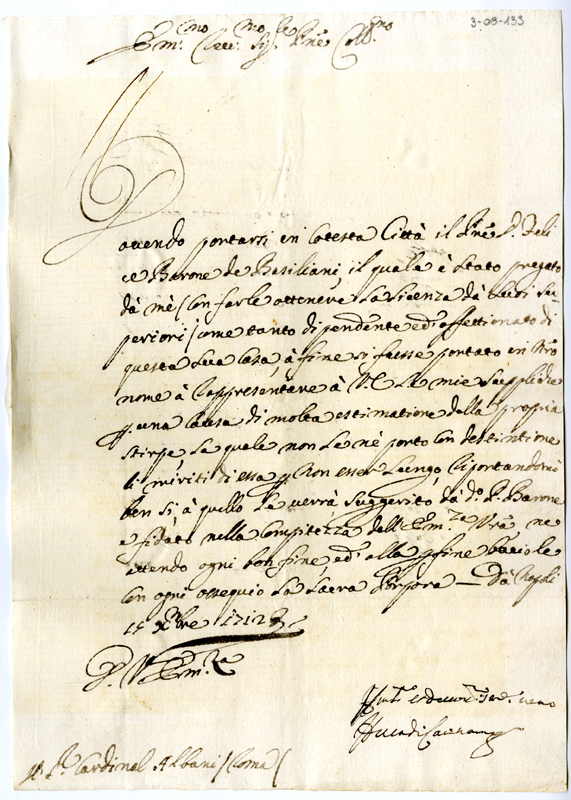 3-08-133
Em.mo e Rev.mo Sig.re P.ne Coll.mo
Havendo portarsi in cotesta Città il P.ne D. Feli
ce Barone de Basiliani, il quale è stato pregato
dà mè / con farle ottenere la licenza dà suoi su
periori / come tanto dipendente ed'affettionato di
questa sua Casa, à fine si fusse portato in nro
nome à rappresentare à V.E. le mie suppliche
p una causa di molta estimatione della propria
stirpe, la quale non le nè porto con destintione
li meriti di essa p non esser lungo, riportandomi
ben si, à quello le verrà suggerito dà do. P. Barone
e fidato nella compitezza dell'Em.za Vra ne
attendo ogni bon fine, ed' alla p fine bacio le
con ogni ossequio la sacra Porpora — Dà Napoli
15 Xbre 1712
D. V. Em.za
S.r Cardinal Albani / Roma /